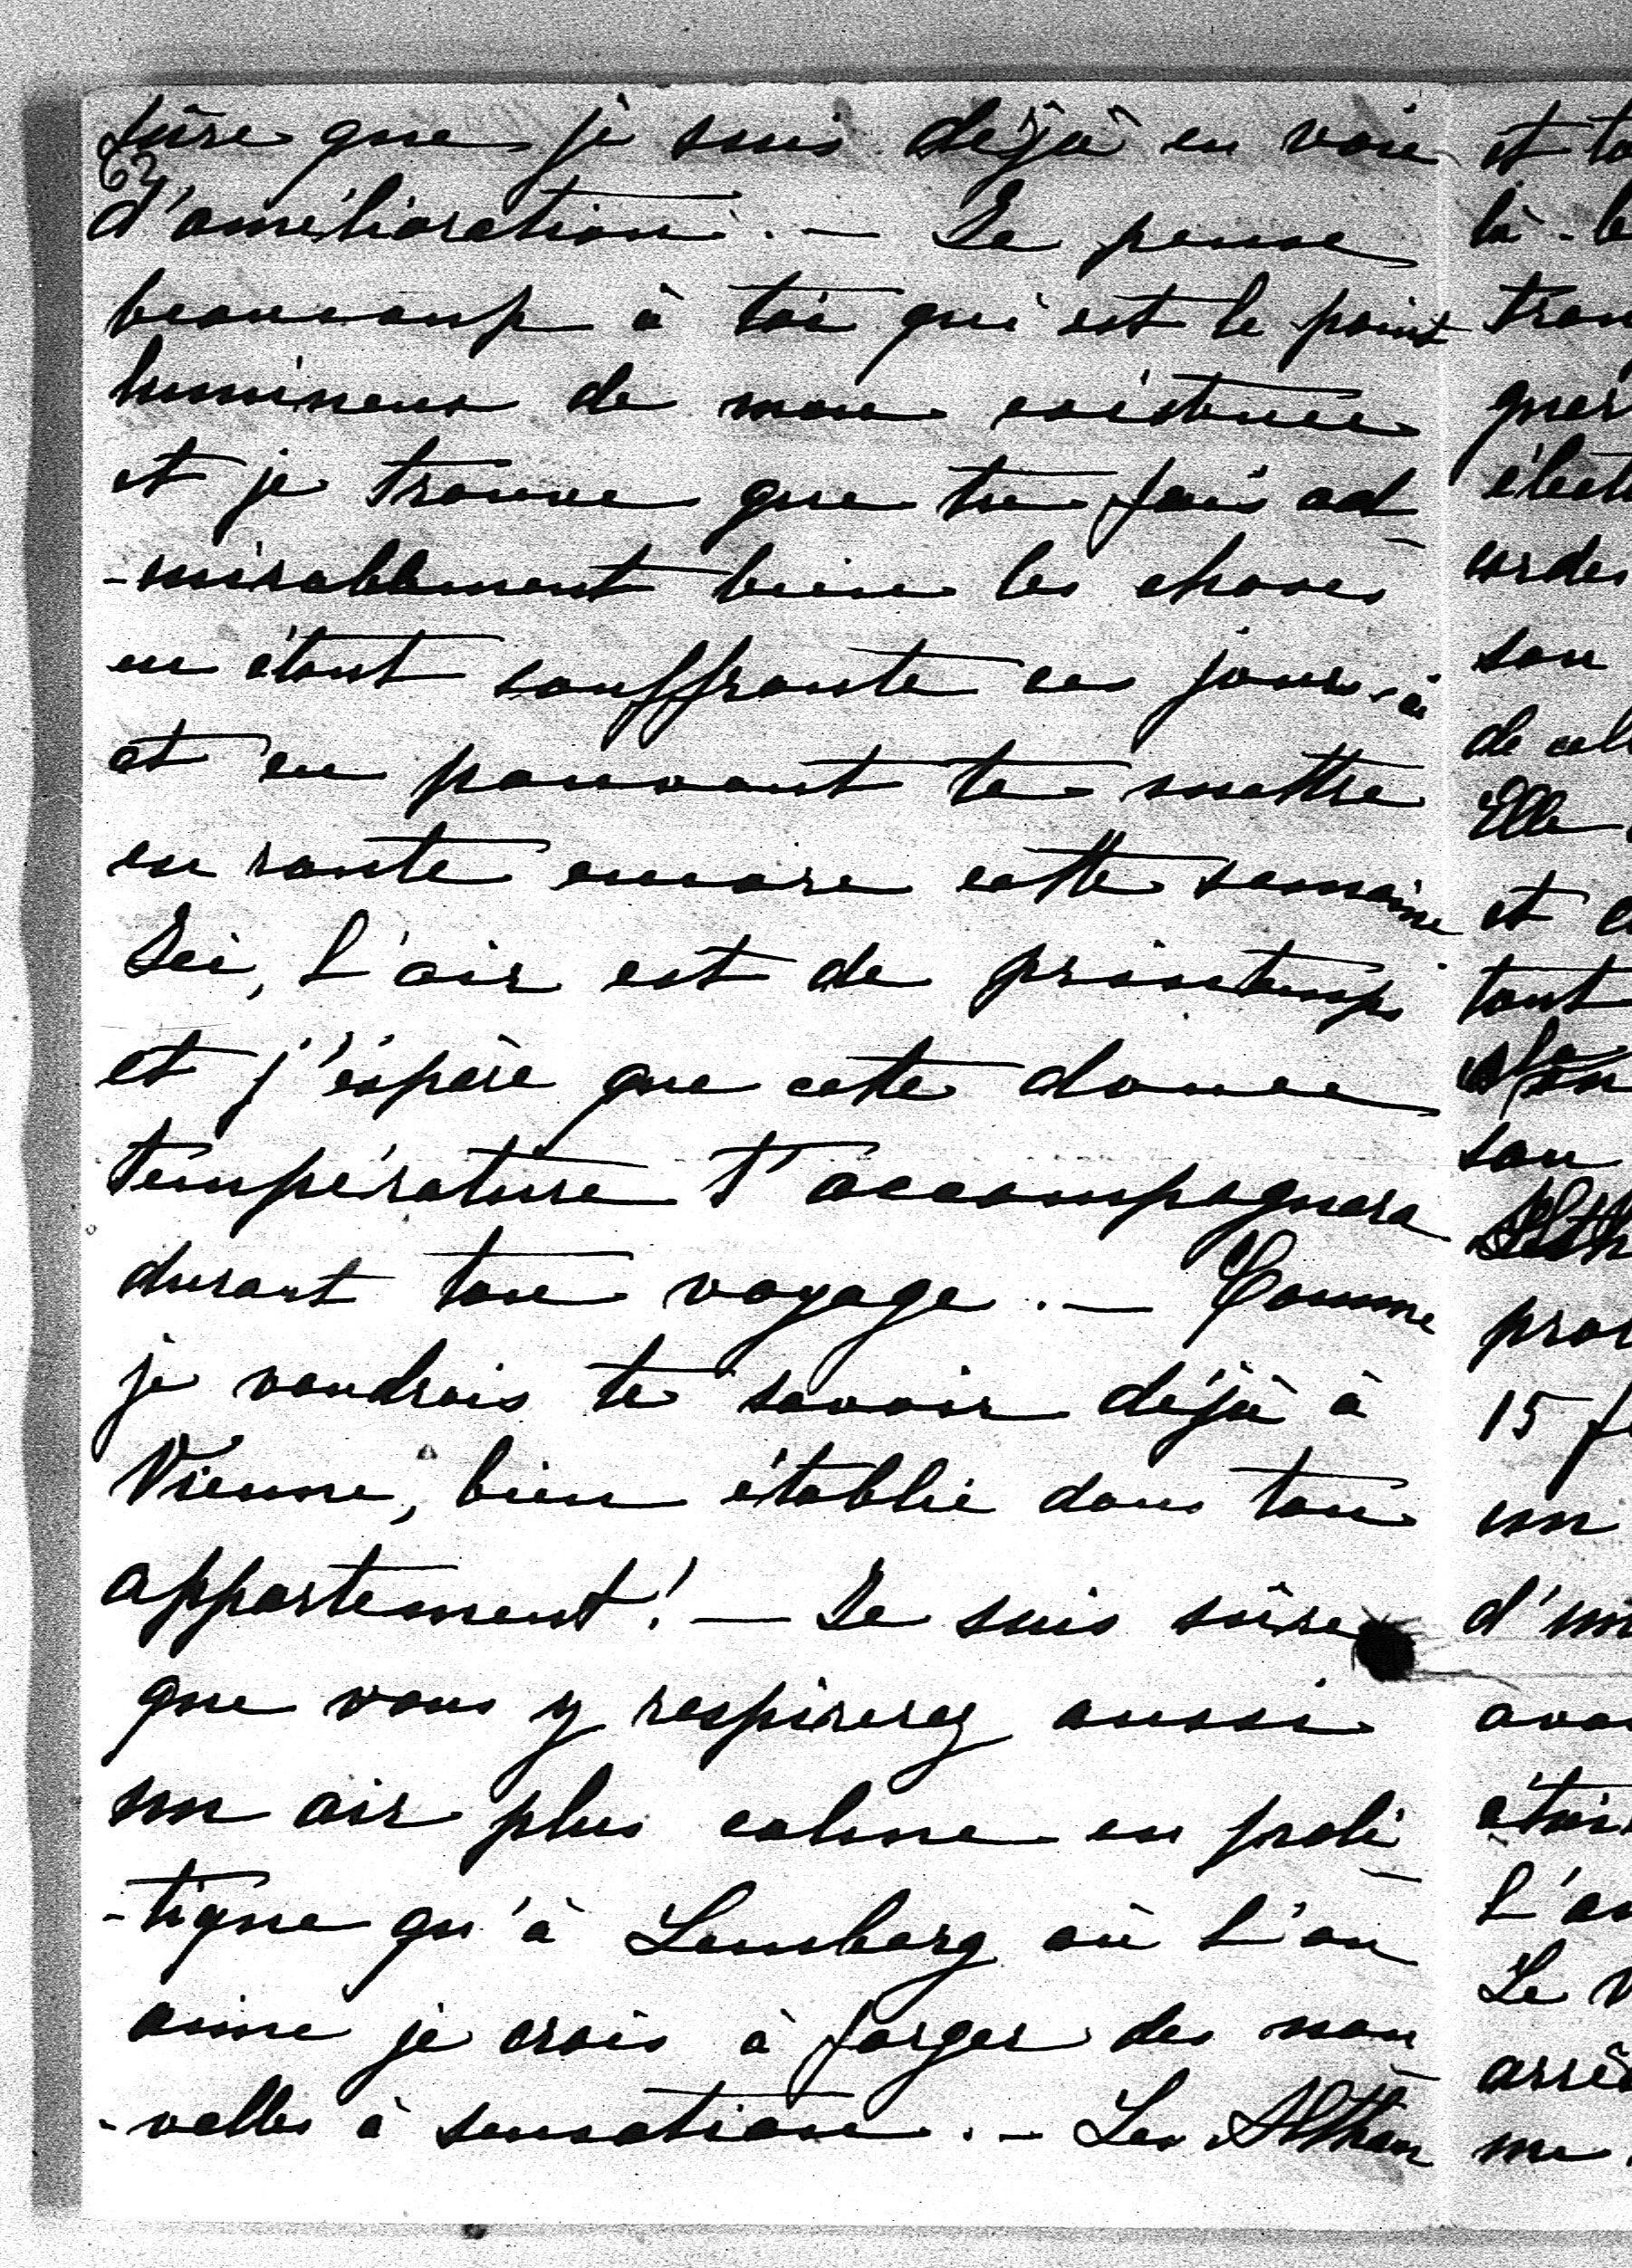 sûre que je suis déjà en voie
62
d'amélioration. — Je pense
beaucoup à toi qui est le point
lumineux de mon existence
et je trouve que tu fais ad
-mirablement bien les choses
en étant souffrante ces jours-ci
et en pouvant te mettre
en route encore cette semaine
Ici, l'air est de printemps
et j'espère que cette douce
température t'accompagnera
durant ton voyage. — Comme
je voudrais te savoir déjà à
Vienne, bien établie dans ton
appartement! — Je suis sûre
que vous y respirerez aussi
un air plus calme en poli
-tique qu'à Lemberg où l'on
aime je crois à forger des nou
-velles à sensation. — Les Althan
et
là-
15
son
de
Elle
et
tout
son
un
Le
me